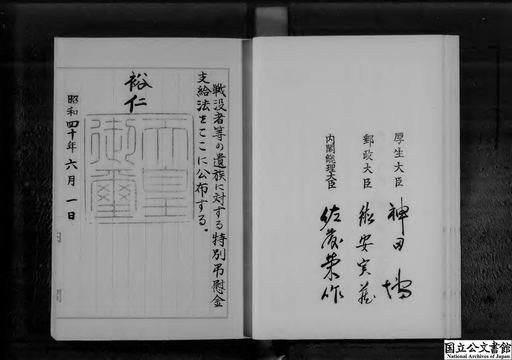 厚生大臣 神田 博
郵政大臣 徳安実蔵
内閣総理大臣 佐藤栄作
戦没者等の遺族に対する特別吊慰金
支給法をここに公布する。
裕仁
天皇
御璽
昭和四十年六月一日
国立公文書館
National Archives of Japan